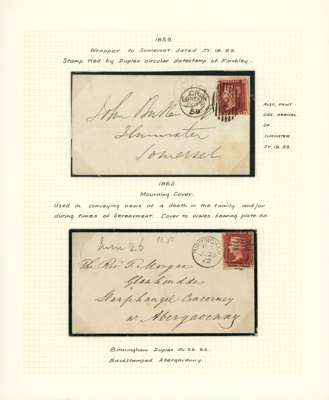 1859.
Wrapper to Somerset dated JY. 18. 59.
Stamp tied by Duplex circular datestamp of Finchley.
ALSO, FRONT
SIDE ARRIVAL
OF
ILMINSTER
JY. 19. 59.
LONDON
59
John
Ilminster
Somerset
1862.
Mourning Cover.
Used in conveying news of a death in the family and/or
during times of bereavment. Cover to Wales bearing plate 50.
June 26
The Revd. T. Morgan
Llanphangel Crucorney
nr. Abergavenny
Birmingham Duplex JU. 26. 62.
Backstamped Abergavenny.